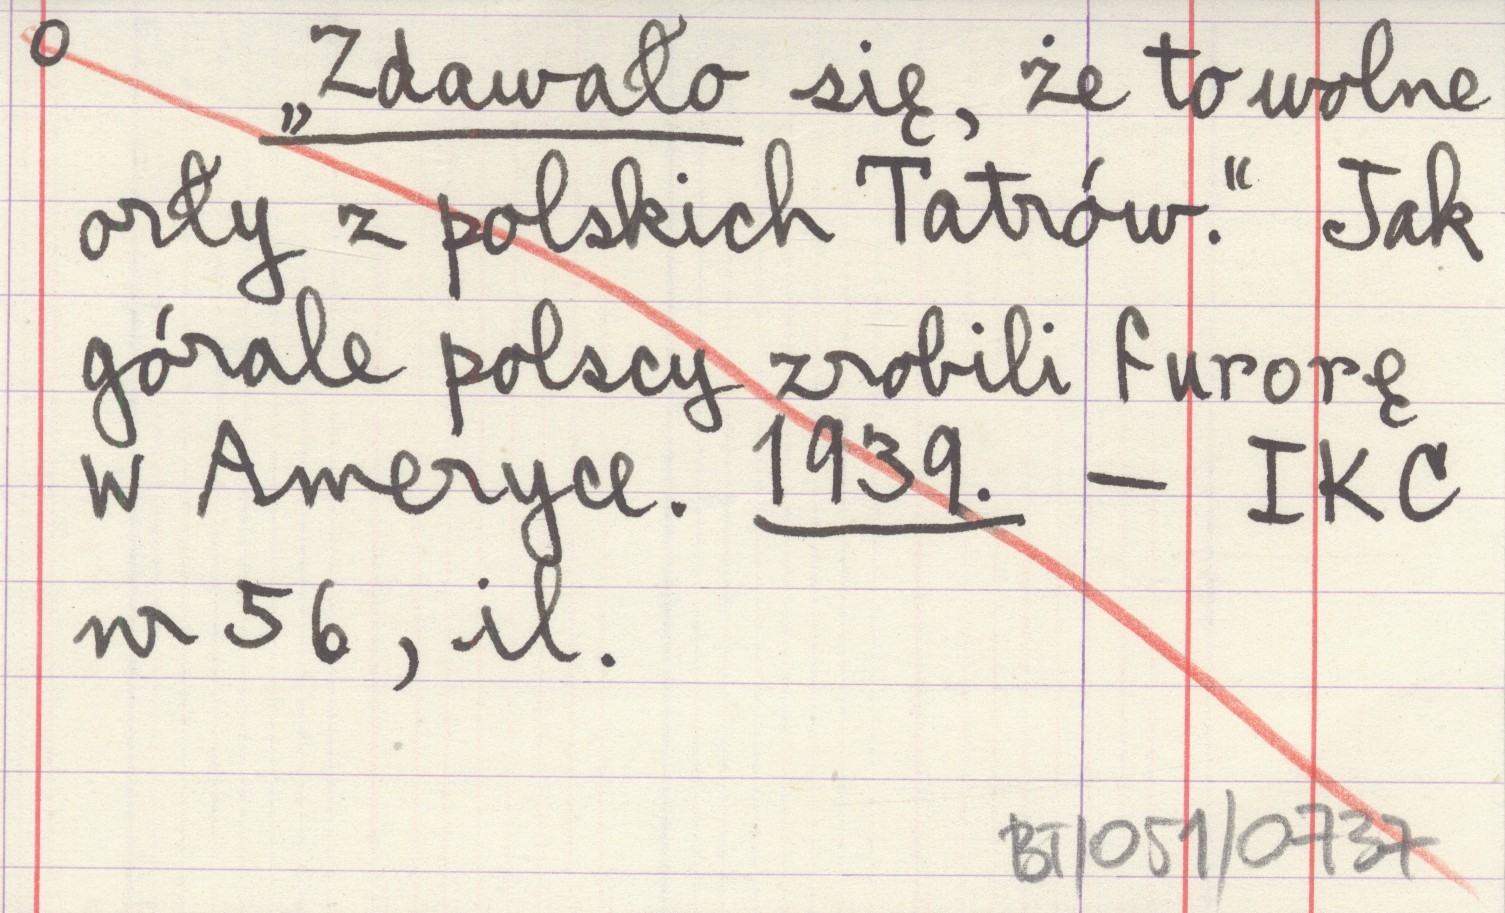 O
„Zdawało się, że to wolne
orły z polskich Tatrów.“ Jak
górale polscy zrobili furorę
w Ameryce. 1939. — IKC
nr 56, il.
BT/051/0737